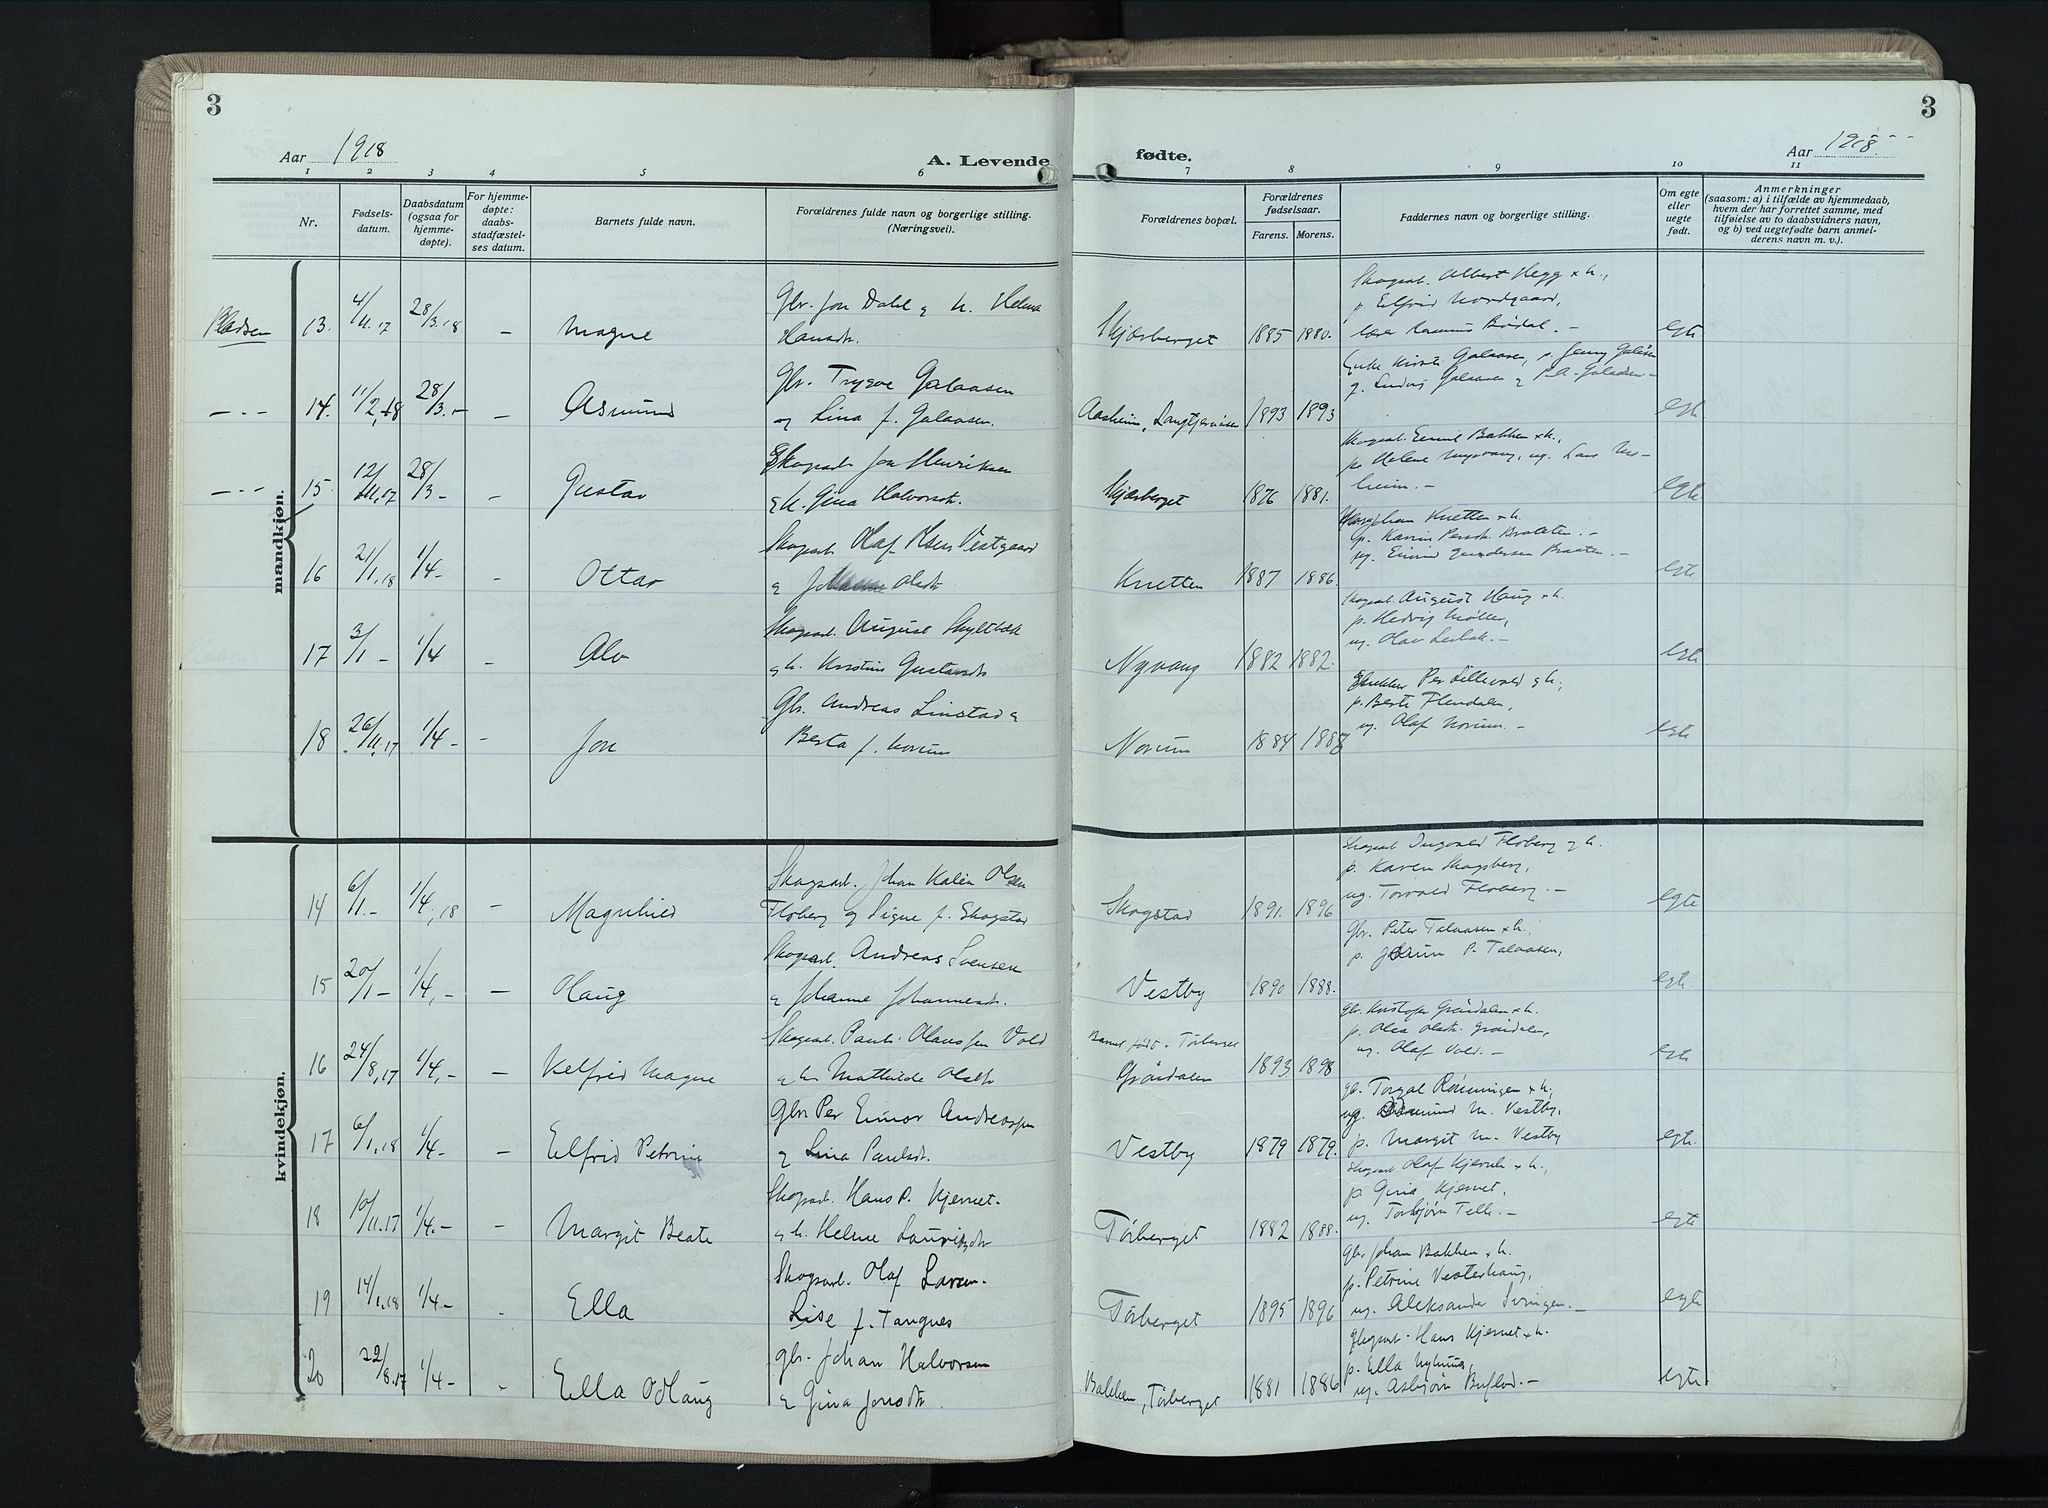 3
3
Aar 1918
A. Levende
fødte.
Aar 1918
1 2 3 4 5 6 7 8 9 10 11
Nr.
Fødsels-
datum.
Daabsdatum
(ogsaa for
hjemme-
døpte).
For hjemme-
døpte:
daabs-
stadfæstel-
ses datum.
Barnets fulde navn.
Forældrenes fulde navn og borgerlige stilling.
(Næringsvei).
Forældrenes bopæl.
Forældrenes
fødselsaar.
Farens. Morens.
Faddernes navn og borgerlige stilling.
Om egte
eller
uegte
født.
Anmerkninger
(saasom: a) i tilfælde av hjemmedaab,
hvem der har forrettet samme, med
tilføielse av to daabsvidners navn,
og b) ved uegtefødte barn anmel-
derens navn m. v.).
mandkjøn.
13. 4/11.17 28/3.18 - Magne
Gbr. Jon Dahl og h. Helma
Hansdtr.
Skjærberget 1885 1880.
Skogsarb. Albert Hegg & h.,
p. Elfrid Nordgaard,
egte
14. 11/2.18 28/3.- - Asmund
Gbr. Trygve Galaasen
og Lina f. Galaasen.
1893 1893
Enke Kirsti Galaasen, p. Jenny Galåsen
g. Ludvig Galaasen
egte
15 12/11.17 28/3 - - Gustav
Skogsarb. Jon Henriksen
& h. Gina Halvorsdtr.
Skjærberget 1876 1881.
Skogsarb. Emil Bakken & h.,
egte
16 21/1.18 1/4 - - Ottar
Skogsarb. Olaf Olsen Vestgaard
& Johanne Olsdtr
Knetten 1887 1886
Johan Knetten & h.
p. Karin Persdtr. Braaten. -
ug. Einar Gundersen Braaten. -
egte
17 3/1 - 1/4 - Alv
Skogsarb. August
& h. Kristine Gustavsdtr
Nyvang 1882 1882.
Skogsarb. August Haug & h.
p. Hedvig Møller,
egte
18 26/11.17 1/4 - - Jon
Gbr. Andreas Linstad &
Berta f. Norum
Norum 1884 1888
Per Lillevold & h.,
p. Berte Flendalen,
ug. Olaf Norum -
egte
kvindekjøn.
14 6/1.- 1/4.18 - Magnhild
Skogsarb. Johan Kalén Olsen
Floberg og Signe f. Skogstad
Skogstad 1891. 1896
Skogsarb. Ingvald Floberg & h.
p. Karen Skogsberg,
ug. Torvald Floberg. -
egte
15 20/1 - 1/4.- - Olaug
Skogsarb. Andreas Svensen
& Johanne Johannesdtr.
Vestby 1890 1888.
gbr. Peter Talaasen & h.,
P. Talaasen,
egte
16 24/8.17 1/4.- - Kelfrid Magne
Skogsarb. Paul Olaussen Vold
& h. Mathilde Olsdtr
Grøndalen 1893. 1898
gbr. Kristofer Grøndalen & h.
p. Olea Olsdtr. Grøndalen,
ug. Olaf Vold. -
egte
17 6/1.18 1/4 - - Elfrid Petrine
Gbr. Per Einar Andreassen
& Lina Paulsdtr.
Vestby 1879 1879.
gb. Torgal Rønningen & h.
ug. M. Vestby,
p. Margit M. Vestby
egte
18 10/11.17 1/4.- - Margit Beate
Skogsarb. Hans P. Kjernet.
& h. Helene Lauritsdtr
Tørberget 1882 1888.
Skogsarb. Olaf Kjernet & h.,
p. Gina Kjernet,
ug. Torbjørn Telle. -
egte
19 14/1.18 1/4 - - Ella
Skogsarb. Olaf Larsen.
Lise f. Tangnes
Tørberget 1895 1896
gbr. Johan Bakken & h.
p. Petrine Vesterhaug,
ug. Aleksander Svingen. -
egte
20 22/8.17 1/4 - - Ella Olaug
gbr. Johan Halvorsen
& Gina Jonsdtr.
Bakken, Tørberget 1881 1886
Skogsarb. Hans Kjernet & h.
p. Ella Nyhus,
ug. Asbjørn Buflod. -
egte